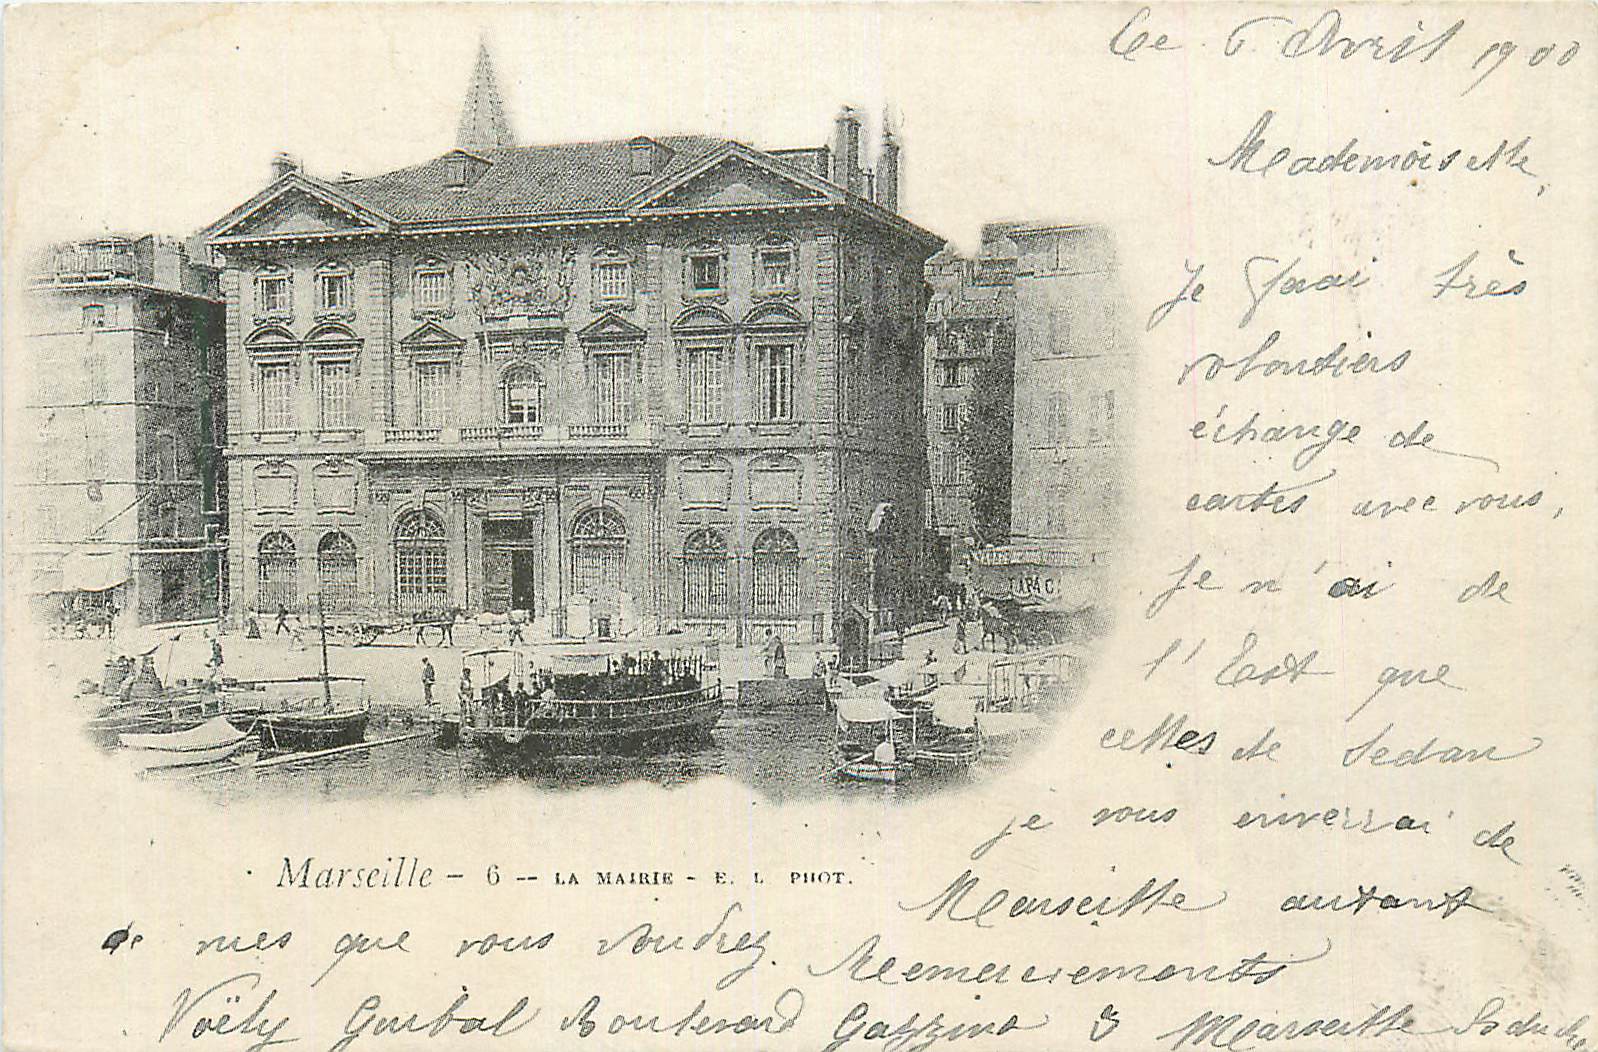 Ce 6 Avril 1900
Mademoiselle,
Je ferai très
volontiers
échange de
cartes avec vous,
Je n'ai de
l'Est que
celles de Sedan
je vous enverrai de
Marseille autant
de vues que vous voudrez.
Remerciements
Guibal Boulevard Gazzino 3 Marseille
TABAC
Marseille - 6 -- LA MAIRIE - E. L PHOT.